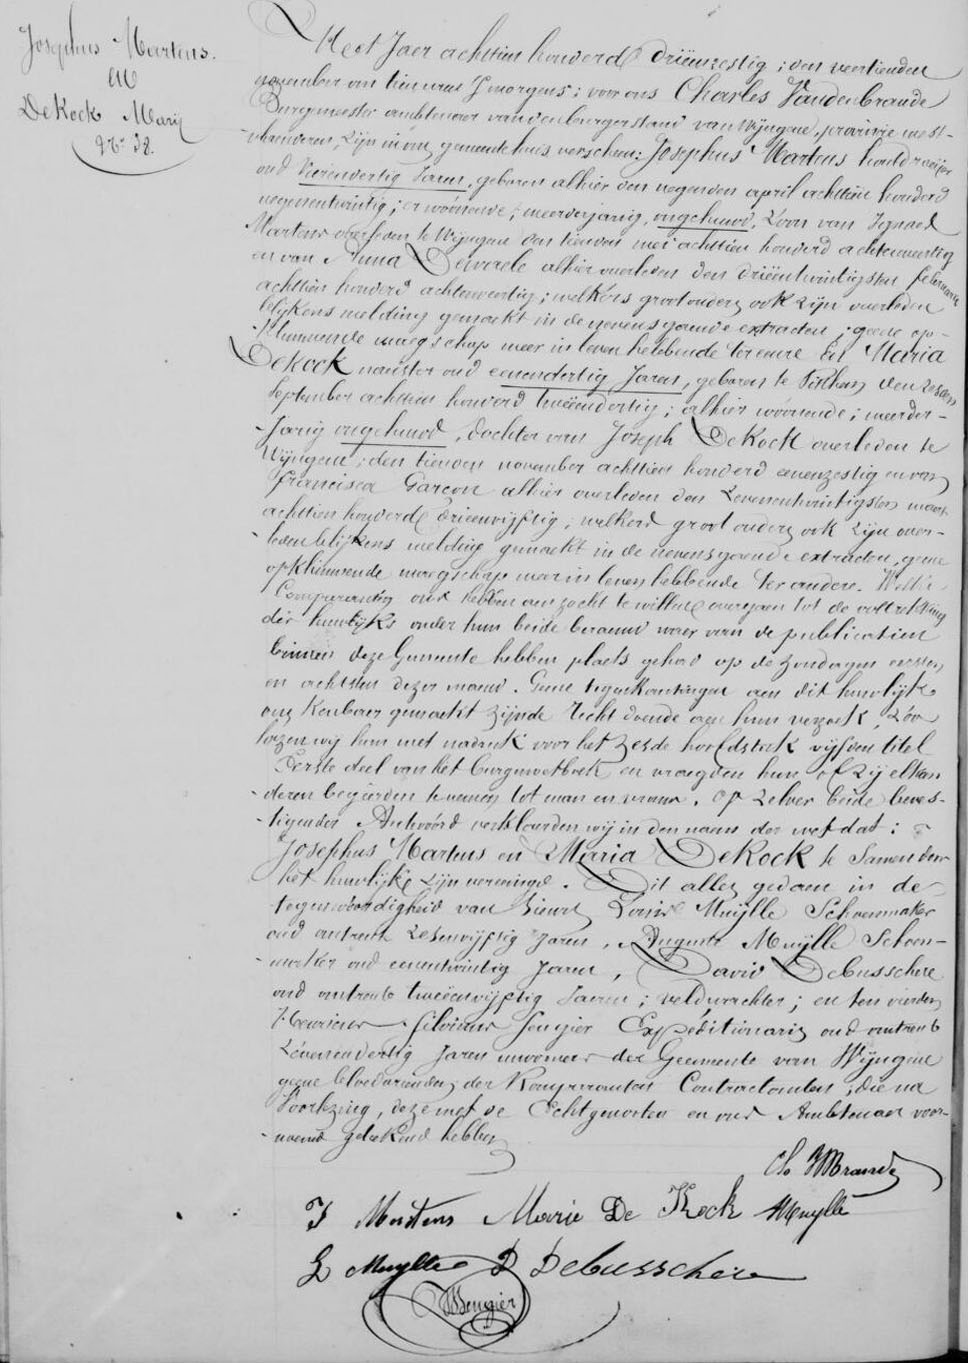 Josephus Martens.
en
DeKock Marie
No 38.
Het Jaer achttien honderd drieënzestig ; den veertienden
november om tien uren s'morgens ; voor ons Charles Vandenbrande
Burgemeester ambtenaer van den burgerstand van Wyngene, provincie west-
vlaenderen, zijn in ons gemeentehuis verschenen: Josephus Martens houtdraeijer
oud vierendertig Jaren, geboren alhier den negenden april achttien honderd
negenentwintig ; er woonende ; meerderjarig, ongehuwd, Zoon van Ignaes
Martens overleden te Wyngene den tienden mei achttien honderd achtenveertig
en van Anna Deweerele alhier overleden den drieëntwintigsten february
achttien honderd achtenveertig ; welkers grootouders ook zijn overleden
blijkens melding gemaekt in de nevensgaende extracten ; geene op-
klimmende maegschap meer in leven hebbende ter eenre En Maria
DeKock naeister oud eenendertig Jaren, geboren te Pitthem den zesden
September achttien honderd tweeëndertig ; alhier woonende ; meerder-
Jarig ongehuwd, dochter van Joseph DeKock overleden te
Wyngene ; den tienden november achttien honderd eenenzestig en van
francisca Garcon alhier overleden den Zevenentwintigsten maert
achttien honderd drieenvijftig ; welkers grootouders ook zijn over-
leden blijkens melding gemaekt in de nevensgaende extracten, geene
opklimmende maegschap meer in leven hebbende ter andere. Welke
Comparanten ons hebben aenzocht te willen overgaen tot de voltrekking
des huwlijks onder hun beide beraemd waer van de publicatien
binnen deze Gemeente hebben plaets gehad op de zondagen eersten
en achtsten dezer maend. Geene tegenkantingen aen dit huwlijk
ons kenbaer gemaekt zijnde recht doende aen hun verzoek, Zoo
lazen wij hun met nadruk voor het zesde hoofdstuk vijfden titel
Eerste deel van het burgerwetboek en vraegden hun of zij elkan-
deren begeerden te nemen tot man en vrouw. Op zelver beide beves-
tigender Antwoord verklaerden wij in den naem der wet dat :
Josephus Martens en Maria DeKock te Samen door
het huwlijk zijn vereenigd. Dit alles gedaen in de
tegenwoordigheid van Sieurs Louis Muÿlle Schoenmaker
oud omtrent zesenvijftig Jaren, Auguste Muÿlle Schoen-
maker oud eenentwintig Jaren, David Debusschere
oud omtrent tweeënvijftig Jaren ; veldwachter ; en ten vierden
Henricus Silvinus Seugier Expeditionaris oud omtrent
Zevenendertig Jaren inwooners der Gemeente van Wyngene
geene bloedvrienden der Komparanten Contractanten ; die na
Voorlezing, deze met de Echtgenooten en ons Ambtenaer voor-
noemd geteekend hebben
Ch VdBrande
J Martens Marie De Kock AMuylle
L Muylle D Debusschere
HSeugier